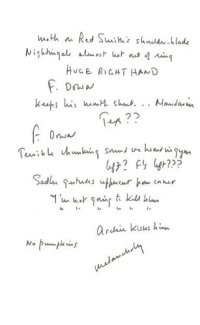 moth on Red Smith's shoulder-blade
Nightingale almost out of ring
HUGE RIGHT HAND
F. DOWN
keeps his mouth shut... Mandarin
Tex??
F. DOWN
Terrible thunking sound on hearing gym
left? F's left???
Sadler gestures opponent from corner
I'm not going to kill him
" " " " "
Archie kisses him
No pumpkins
melancholy